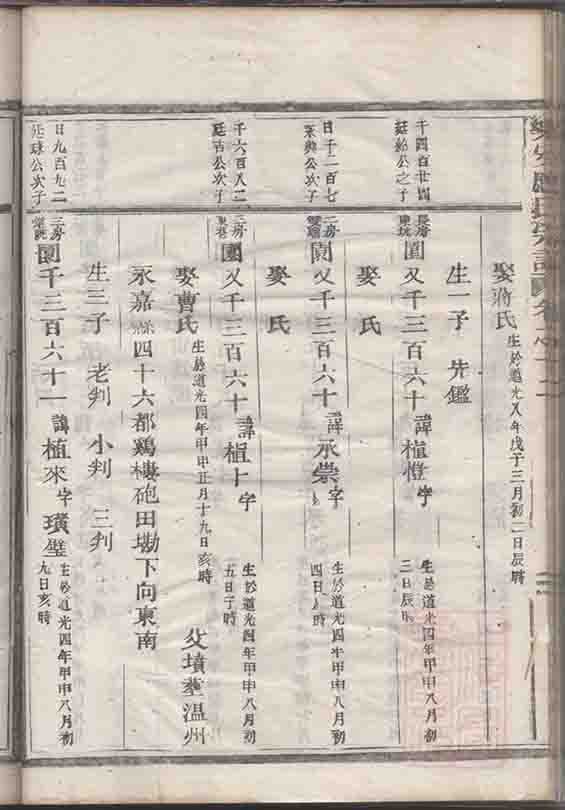 娶 氏 生於道光八年戊子三月初二日辰時
生一子 先鑑
千四百廿四
廷 公之子
長房
園 又千三百六十 諱 植 字 生於道光四年甲申八月初三日辰時
娶 氏
日千二百七
公次子
二房
園 又千三百六十 諱 承崇 字 生於道光四年甲申八月初四日 時
娶 氏
千六百八二
廷 公次子
三房
園 又千三百六十 諱 植 字 生於道光四年甲申八月初五日子時
娶曹氏 生於道光四年甲申正月十九日亥時 父墳塟溫州
永嘉縣四十六都鷄樓砲田塝下向東南
生三子 老判 小判 三判
日九百九二
廷球公次子
三房
園 千三百六十一 諱 植來 字 璜璧 生於道光四年甲申八月初九日亥時